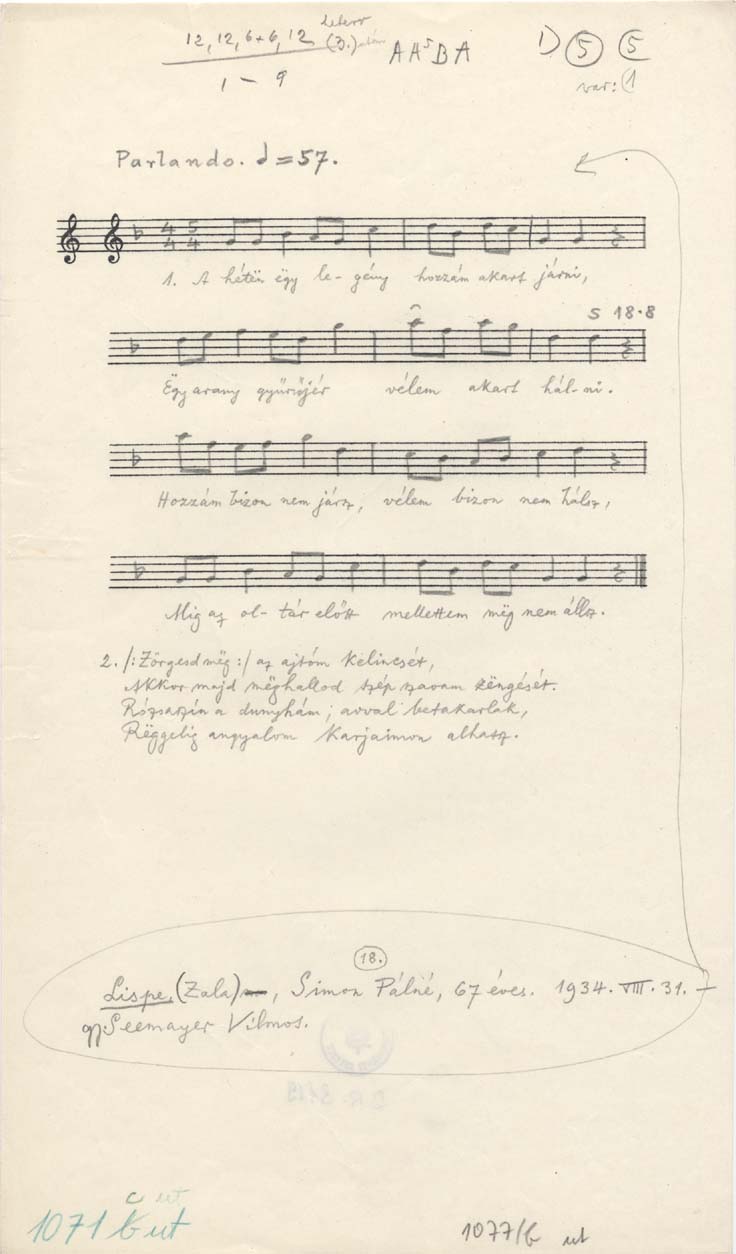 12, 12, 6+6, 12 (3.) után
1 – 9
AA⁵BA
D 5 5
var: 1
Parlando. = 57.
4 5
4 4
1. A hétën ëgy le- gény hozzám akart járni,
S 18.8
Ëgy arany gyűrűjér vélem akart hál- ni.
Hozzám bizon nem jársz, vélem bizon nem hálsz,
Mig az ol- tár előtt mellettem mëg nem állsz.
2. /: Zörgesd mëg :/ az ajtóm këlincsét,
Akkor majd mëghallod szép szavam zëngését.
Rózsaszín a dunyhám, avval betakarlak,
Rëggelig angyalom karjaimon alhatsz.
18.
Lispe, (Zala) , Simon Pálné, 67 éves. 1934. VIII. 31. –
gy. Seemayer Vilmos.
c ut
1071 b ut
1077/b ut